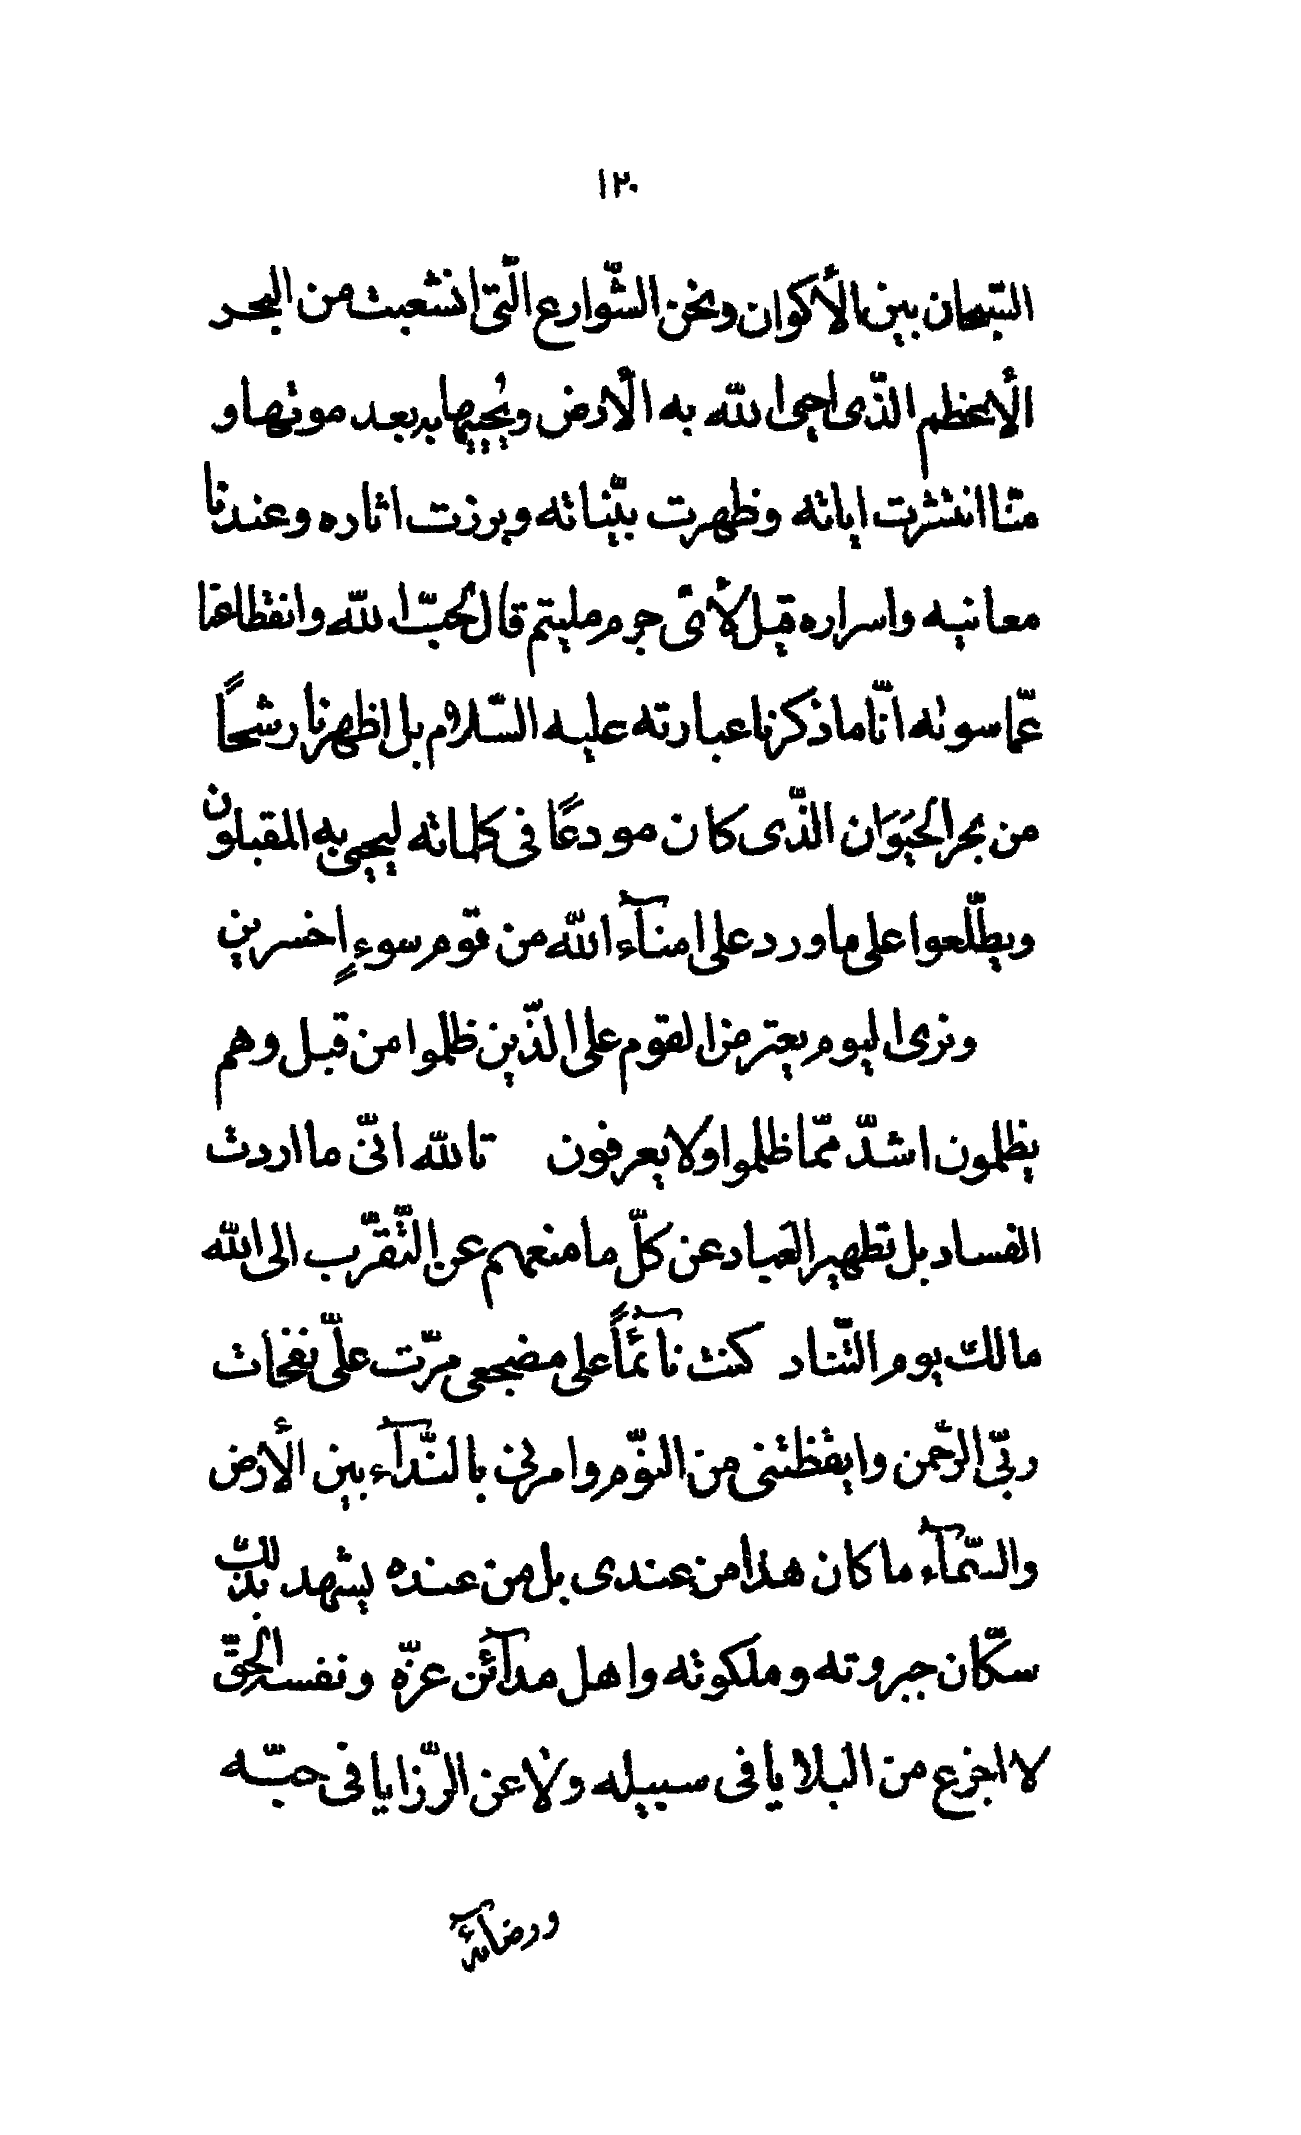 ١٢٠
السّبحان بين الأكوان ونحن الشّوارع الّتی انشعبت من البحر
الأعظم الّذی احیی الله به الأرض ویُحییها به بعد موتها و
منّا انتشرت ایاته وظهرت بیّناته وبرزت اثاره وعندنا
معانیه واسراره قیل لأیّ جرم ملیتم قال لحبّ الله وانقطاعنا
عمّا سوٰه انّا ما ذکرنا عبارته علیه السّلام بل اظهرنا رشحًا
من بحر الحَیَوَان الّذی کان مودعًا فی کلماته لیحیی به المقبلون
ویطّلعوا علی ما ورد علی امنآء الله من قوم سوءٍ اخسرین
ونری الیوم یعترض القوم علی الّذین ظلموا من قبل وهم
یظلمون اشدّ ممّا ظلموا ولا یعرفون تالله انّی ما اردت
الفساد بل تطهیر العباد عن کلّ ما منعهم عن التّقرّب الی الله
مالک یوم التّناد کنت نآئمًا علی مضجعی مرّت علیّ نفحات
ربّی الرّحمن وایقظتنی من النّوم وامرنی بالنّدآء بین الأرض
والسّمآء ما کان هذا من عندی بل من عنده یشهد بذلک
سکّان جبروته وملکوته واهل مدآئن عزّه ونفسه الحقّ
لا اجزع من البلایا فی سبیله ولا عن الرّزایا فی حبّه
ورضآئه